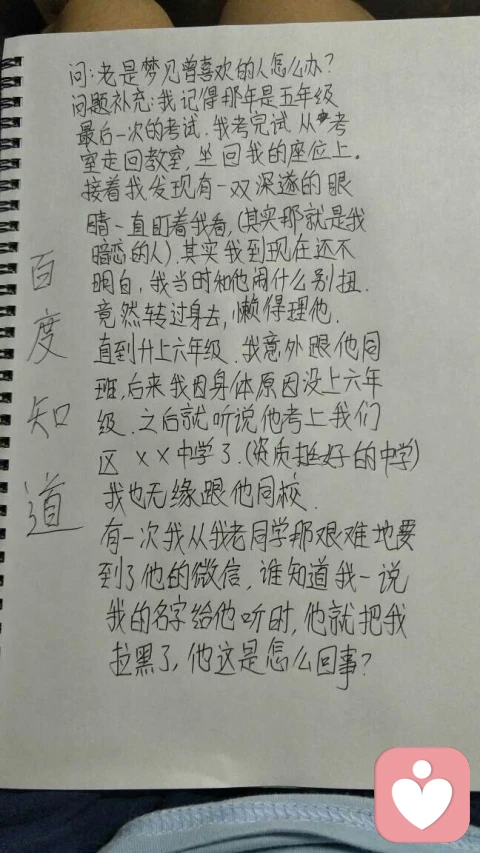 问:老是梦见曾喜欢的人怎么办?
问题补充:我记得那年是五年级
最后一次的考试.我考完试从考
室走回教室,坐回我的座位上。
接着我发现有一双深邃的眼
睛一直盯着我看,(其实那就是我
暗恋的人).其实我到现在还不
明白,我当时和他闹什么别扭.
竟然转过身去,懒得理他.
直到升上六年级.我意外跟他同
班,后来我因身体原因没上六年
级.之后就听说他考上我们
区××中学了.(资质挺好的中学)
我也无缘跟他同校.
有一次我从我老同学那艰难地要
到了他的微信,谁知道我一说
我的名字给他听时,他就把我
拉黑了,他这是怎么回事?
百度知道